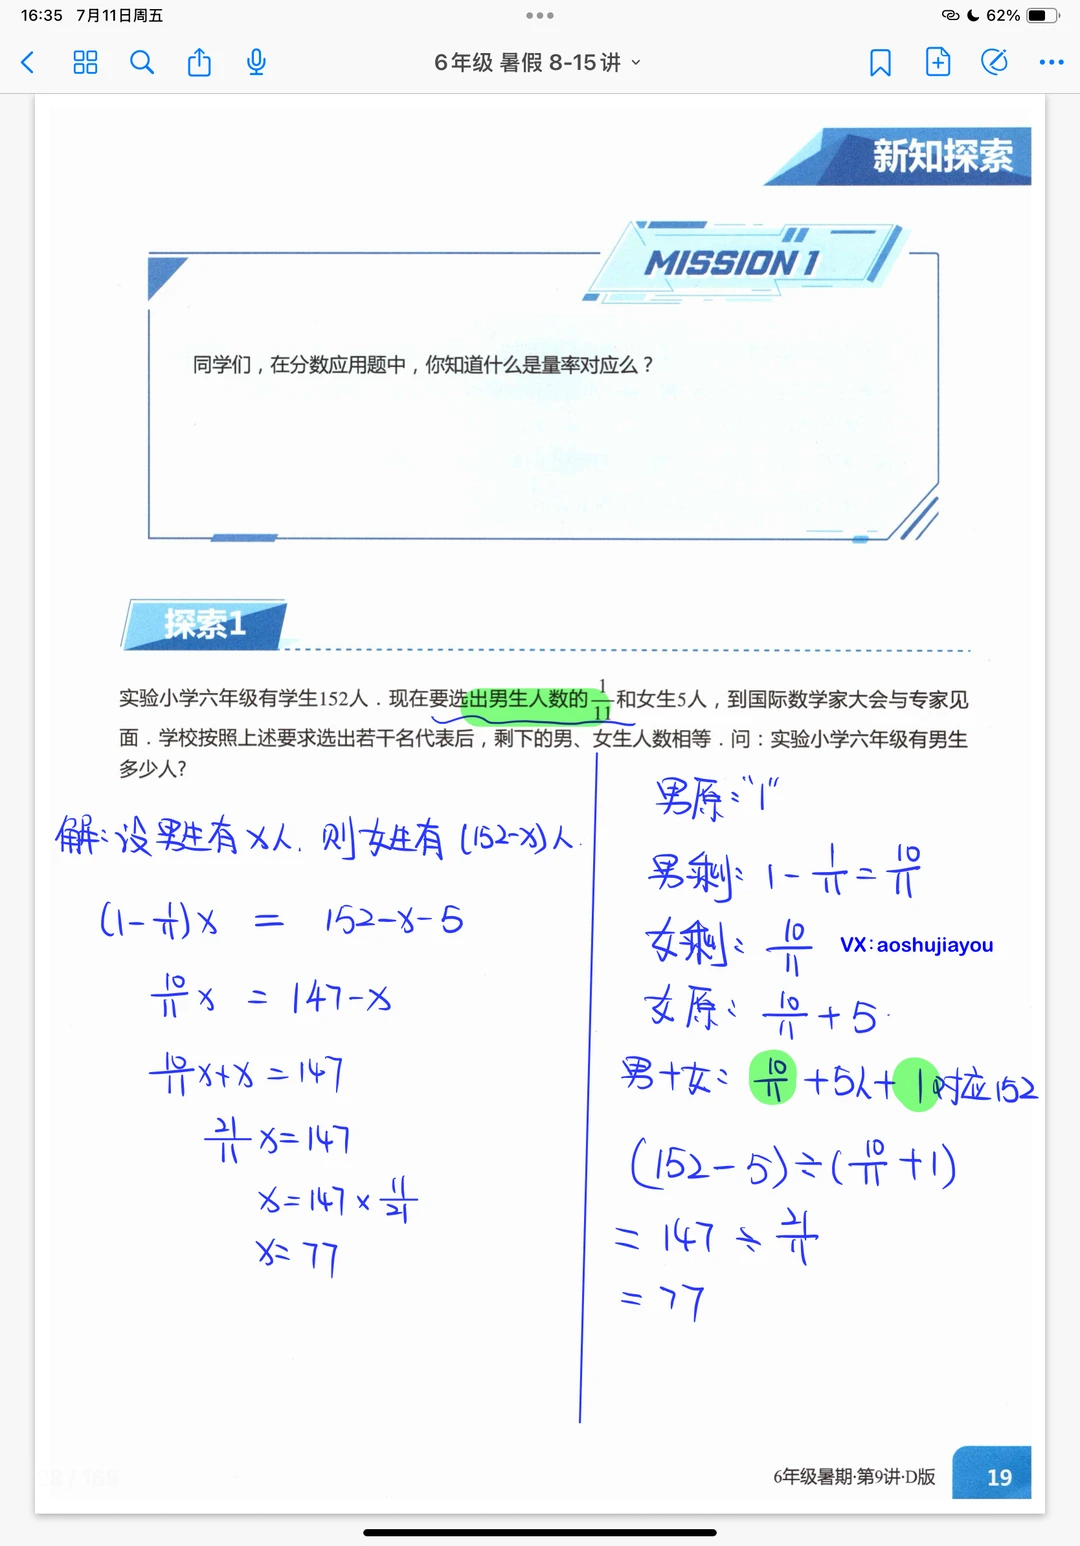 16:35 7月11日周五
62%
6年级 暑假 8-15讲
新知探索
MISSION 1
同学们，在分数应用题中，你知道什么是量率对应么？
探索1
实验小学六年级有学生152人．现在要选出男生人数的1/11和女生5人，到国际数学家大会与专家见
面．学校按照上述要求选出若干名代表后，剩下的男、女生人数相等．问：实验小学六年级有男生
多少人？
解：设男生有x人，则女生有(152-x)人.
(1-1/11)x = 152-x-5
10/11 x = 147-x
10/11 x+x=147
21/11 x=147
x=147×11/21
x=77
男原："1"
男剩：1-1/11=10/11
女剩：10/11
VX:aoshujiayou
女原：10/11+5
男+女：10/11+5人+1对应152
(152-5)÷(10/11+1)
=147÷21/11
=77
6年级暑期·第9讲·D版
19